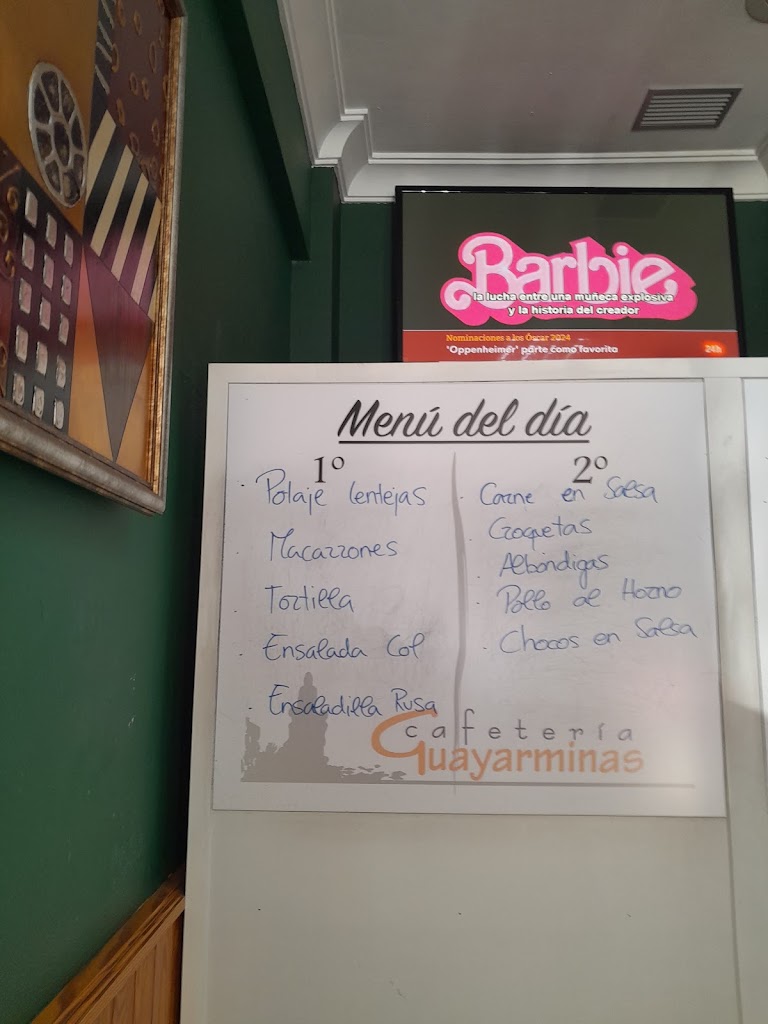 Barbie
la lucha entre una muñeca explosiva
y la historia del creador
Nominaciones a los Óscar 2024
'Oppenheimer' parte como favorita
24h
Menú del día
1º
Potaje lentejas
Macarrones
Tortilla
Ensalada Col
Ensaladilla Rusa
2º
Carne en Salsa
Croquetas
Albondigas
Pollo al Horno
Chocos en Salsa
cafetería
Guayarminas